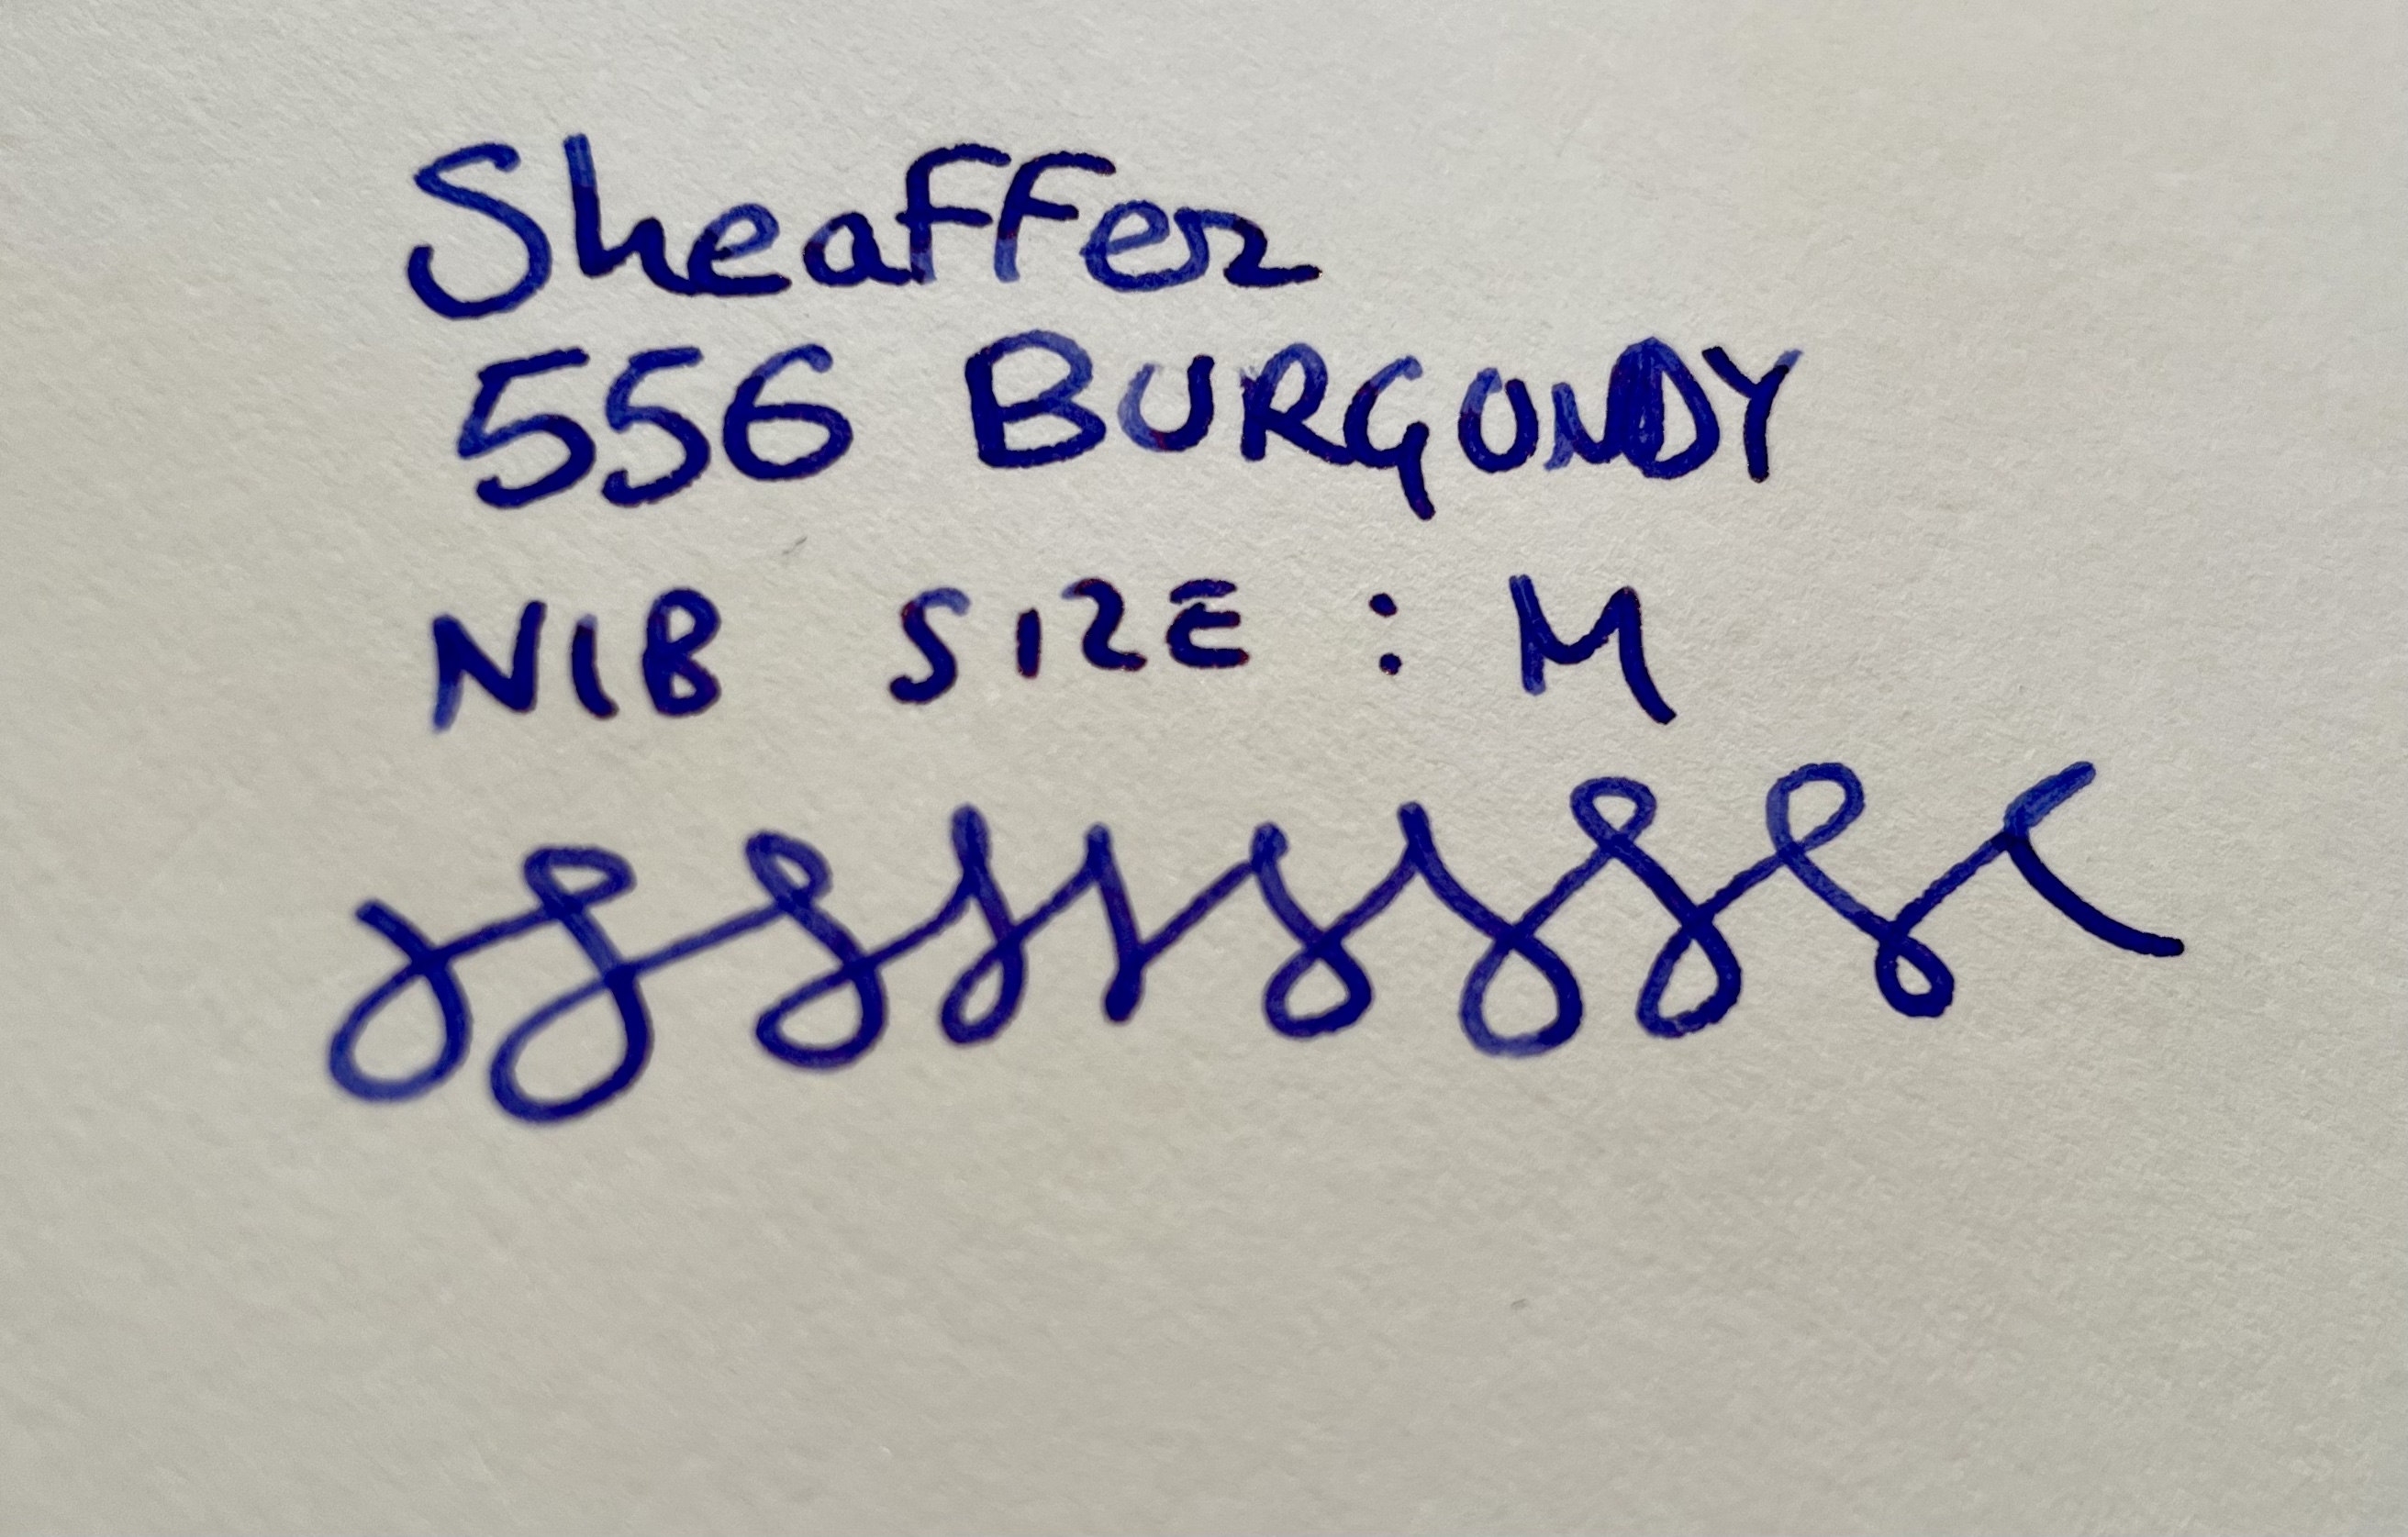 Sheaffer
556 BURGUNDY
NIB SIZE : M